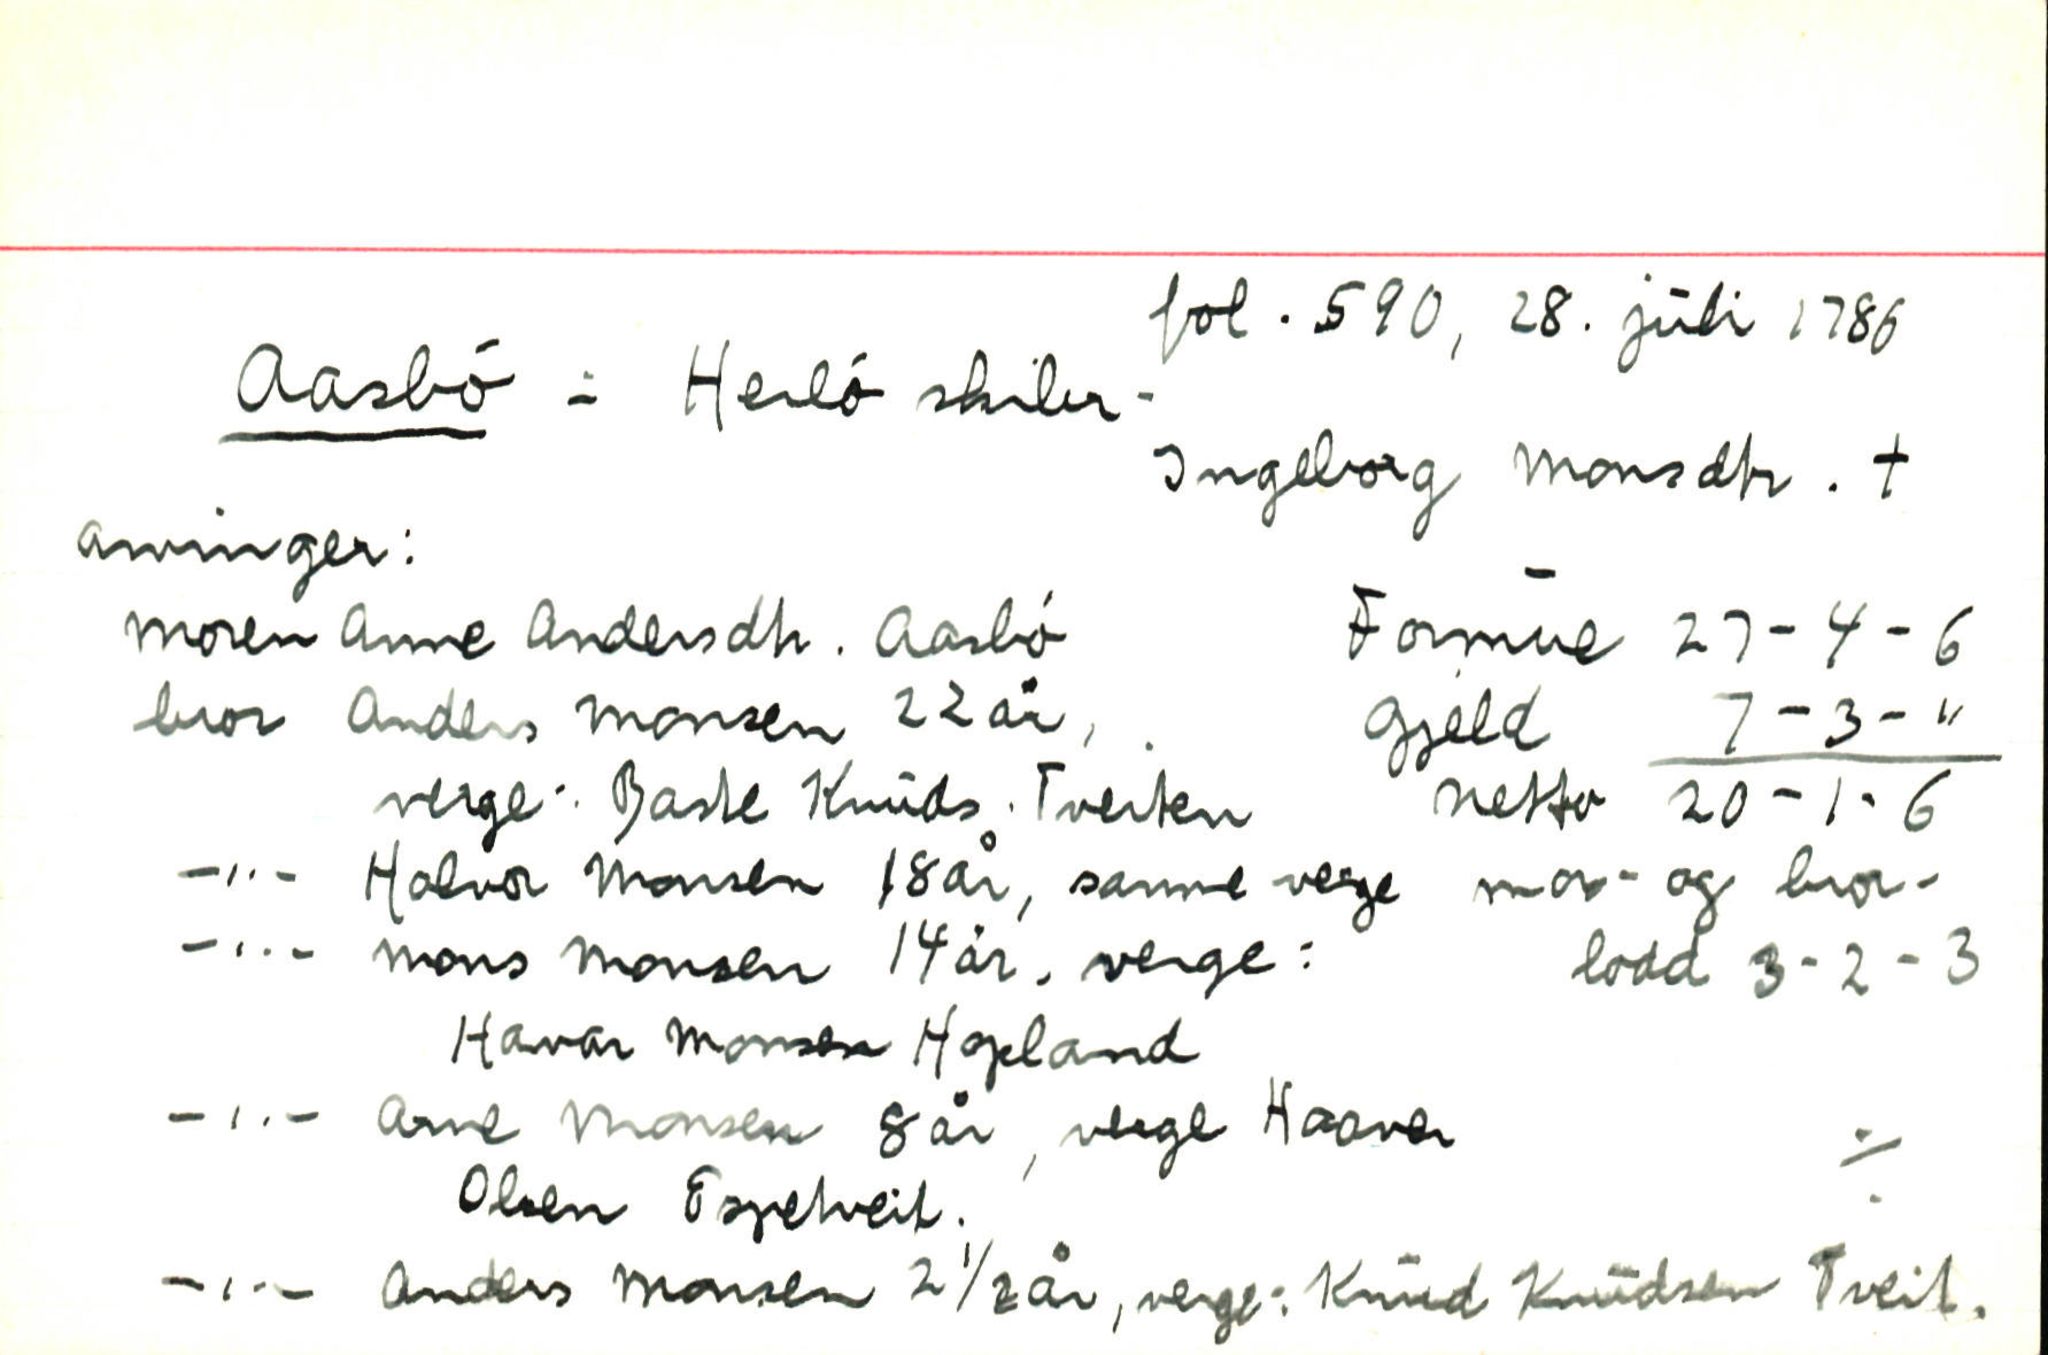 fol. 590, 28. juli 1786
Aasbö - Herlö skibr -
Ingeborg Monsdtr. +
arvinger:
moren Anne Andersdtr. Aasbö Formue 27-4-6
bror Anders Monsen 22 år, Gjeld 7-3-"
verge: Baste Knuds. Tveiten netto 20-1-6
-"- Halvor Monsen 18 år, samme verge mor- og bror-
-"- Mons Monsen 14 år, verge: lodd 3-2-3
Havar Monsen Hopland
-"- Arne Monsen 8 år, verge Haaver
Olsen Espetveit. ./.
-"- Anders Monsen 2 1/2 år, verge: Knud Knudsen Tveit.